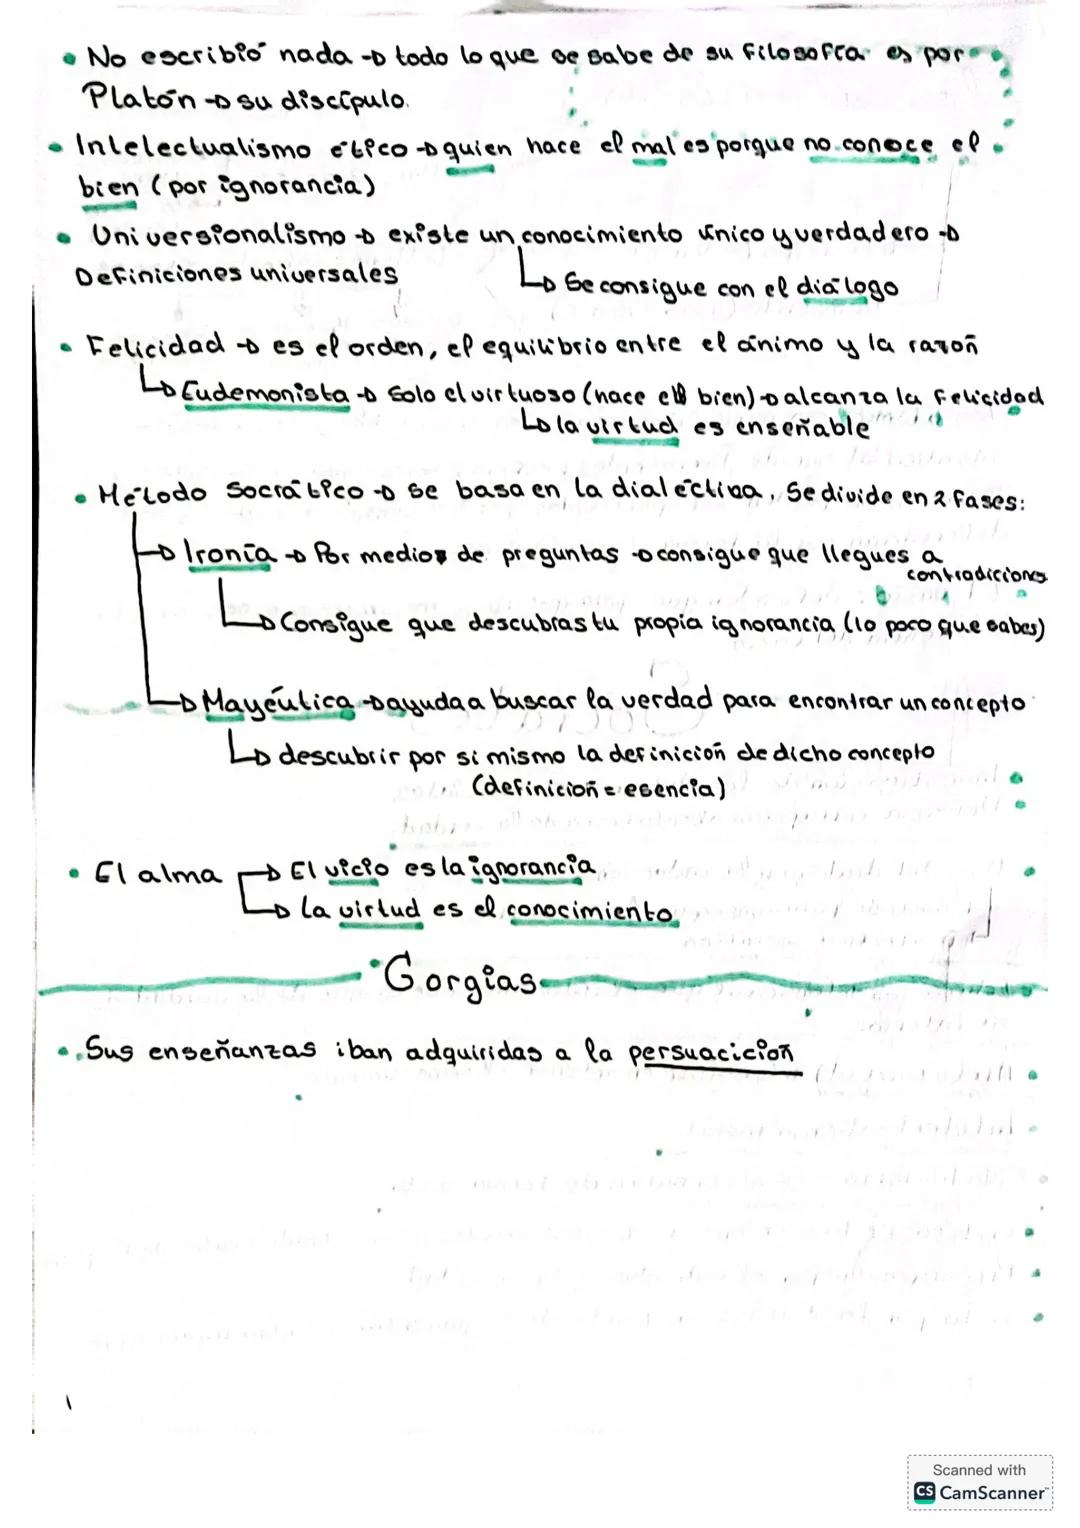 • No escribió nada → todo lo que se sabe de su filosofía es por
Platón → su discípulo.
• Intelectualismo ético → quien hace el mal es porque no conoce el
bien (por ignorancia)
• Universionalismo → existe un conocimiento único y verdadero →
Definiciones universales
↳ Se consigue con el diálogo
• Felicidad → es el orden, el equilibrio entre el ánimo y la razón
↳ Eudemonista → Solo el virtuoso (hace el bien) → alcanza la felicidad
↳ la virtud es enseñable
• Método Socrático → se basa en la dialéctica. Se divide en 2 fases:
→ Ironía → Por medios de preguntas → consigue que llegues a
contradiciones
↳ Consigue que descubras tu propia ignorancia (lo poco que sabes)
→ Mayéutica → ayuda a buscar la verdad para encontrar un concepto
↳ descubrir por sí mismo la definición de dicho concepto
(definición = esencia)
• El alma → El vicio es la ignorancia
→ La virtud es el conocimiento
• Gorgias
• Sus enseñanzas iban adquiridas a la persuacición
Scanned with
CS CamScanner